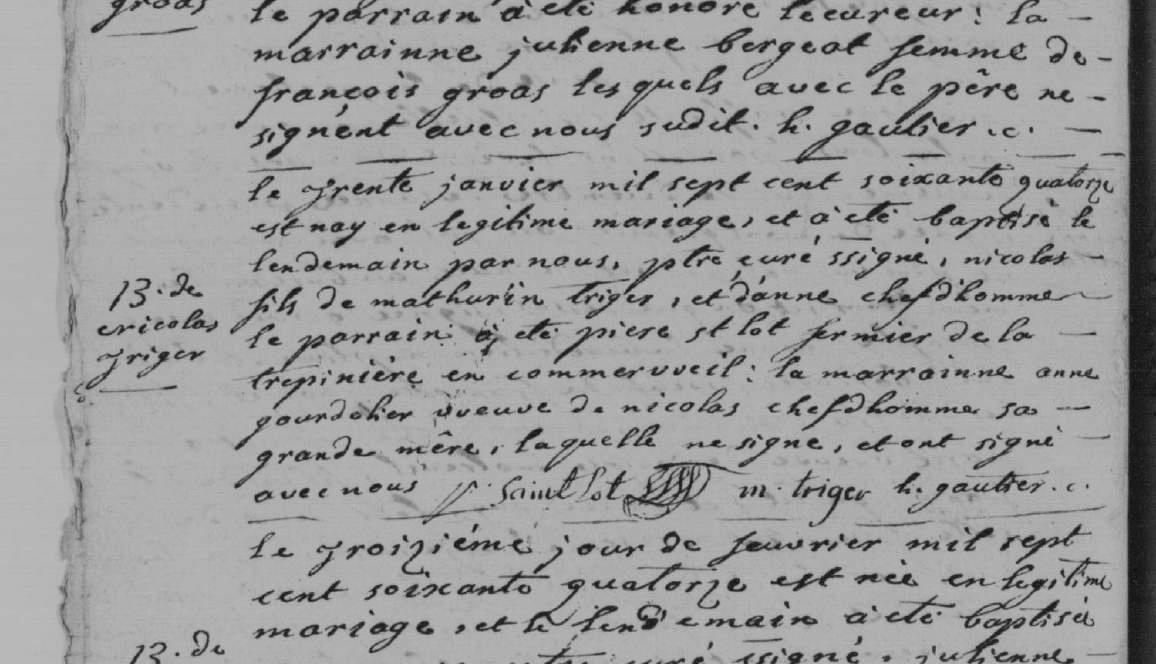 groas
le parrain a été honoré lecureur : la -
marrainne julienne bergeot femme de -
françois groas lesquels avec le pêre ne -
signent avec nous sudit . h. gautier .c. -
le trente janvier mil sept cent soixante quatorze
est nay en legitime mariage, et à eté baptisé le
lendemain par nous, ptre curé ssigné, nicolas -
13. de
nicolas
triger
fils de mathurin triger, et d'anne chefdhomme
le parrain à eté piere st lot fermier de la -
trepiniére en commerveil : la marrainne anne
gourdelier veuve de nicolas chefdhomme sa -
grande mêre, laquelle ne signe, et ont signé -
avec nous p. saint lot m. triger h. gautier .c.
le troiziéme jour de feuvrier mil sept
cent soixante quatorze est née en legitime
mariage, et le lendemain à eté baptisée
13. de
curé ssigné, julienne -